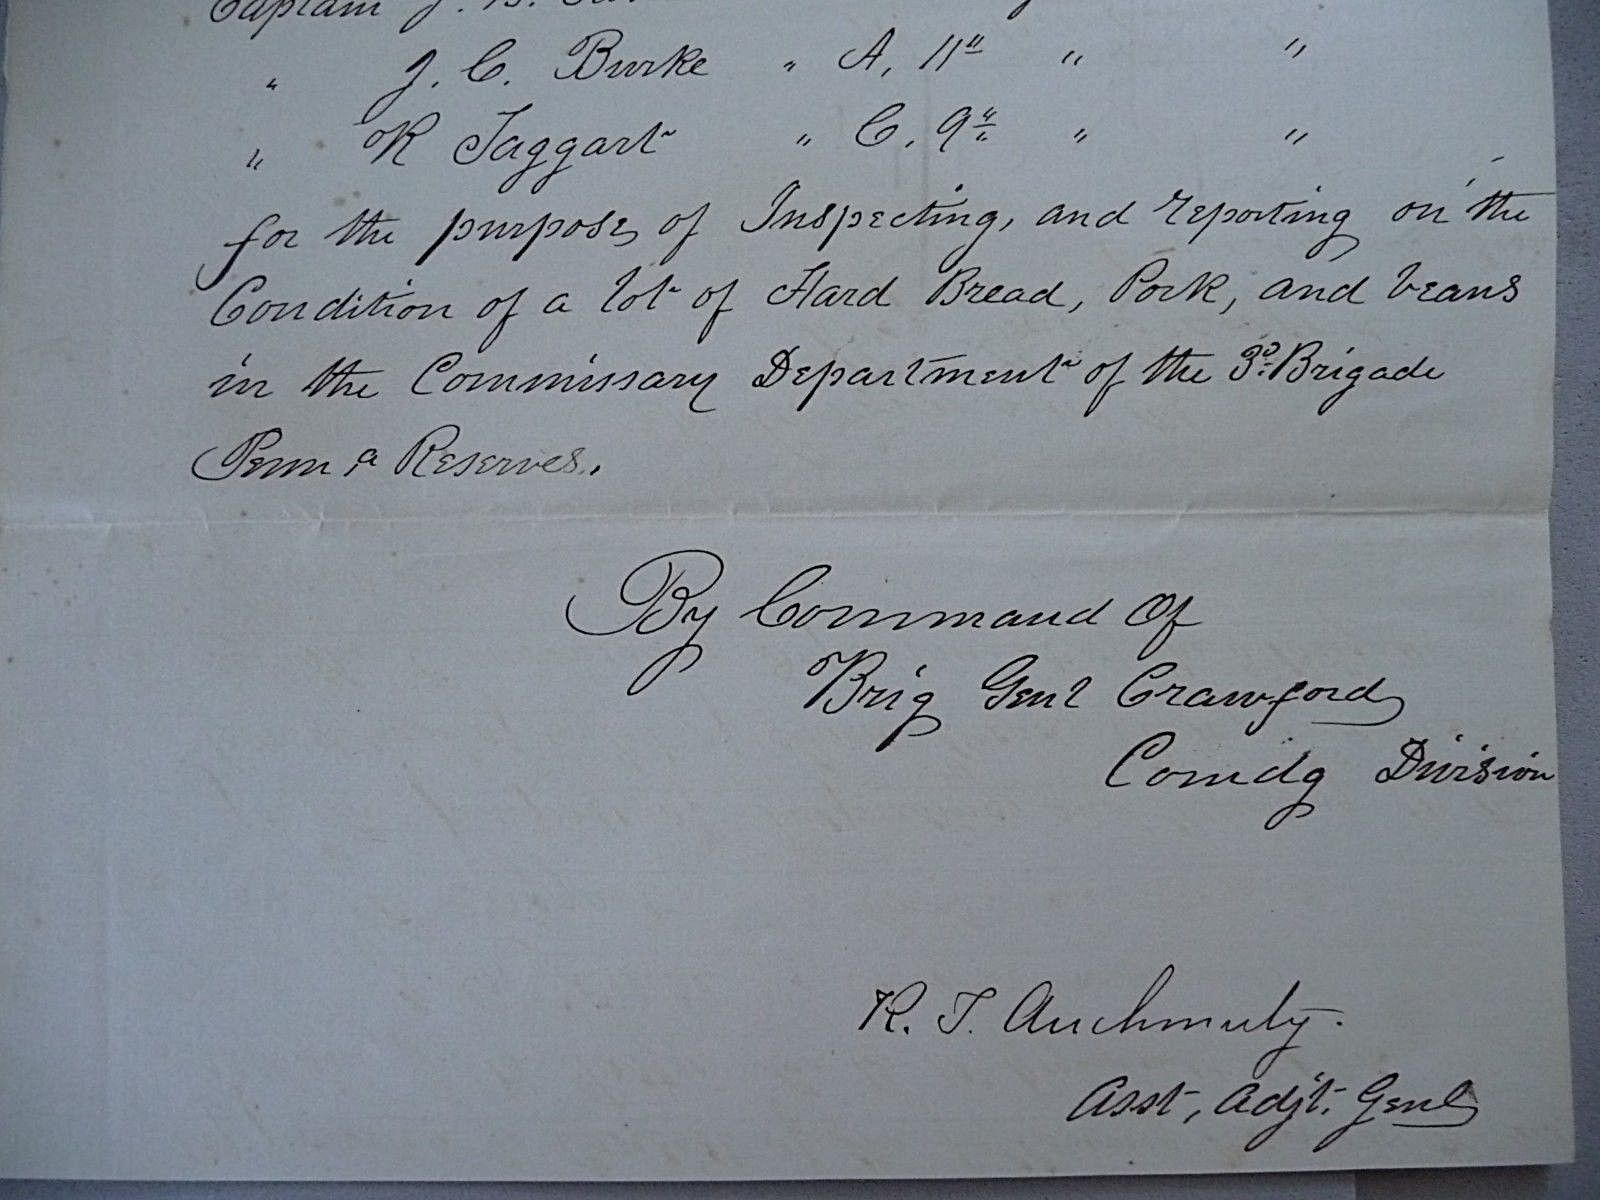 Captain J. B.
" J. C. Burke " A, 11" " "
" R Taggart " C, 9" " "
for the purpose, of Inspecting, and reporting on the
Condition of a lot of Hard Bread, Pork, and beans
in the Commissary Department of the 3d Brigade
Penn.a Reserves.
By Command Of
Brig Genl Crawford
Comdg Division
R. T. Auchmuty.
Asst, Adjt. Genl